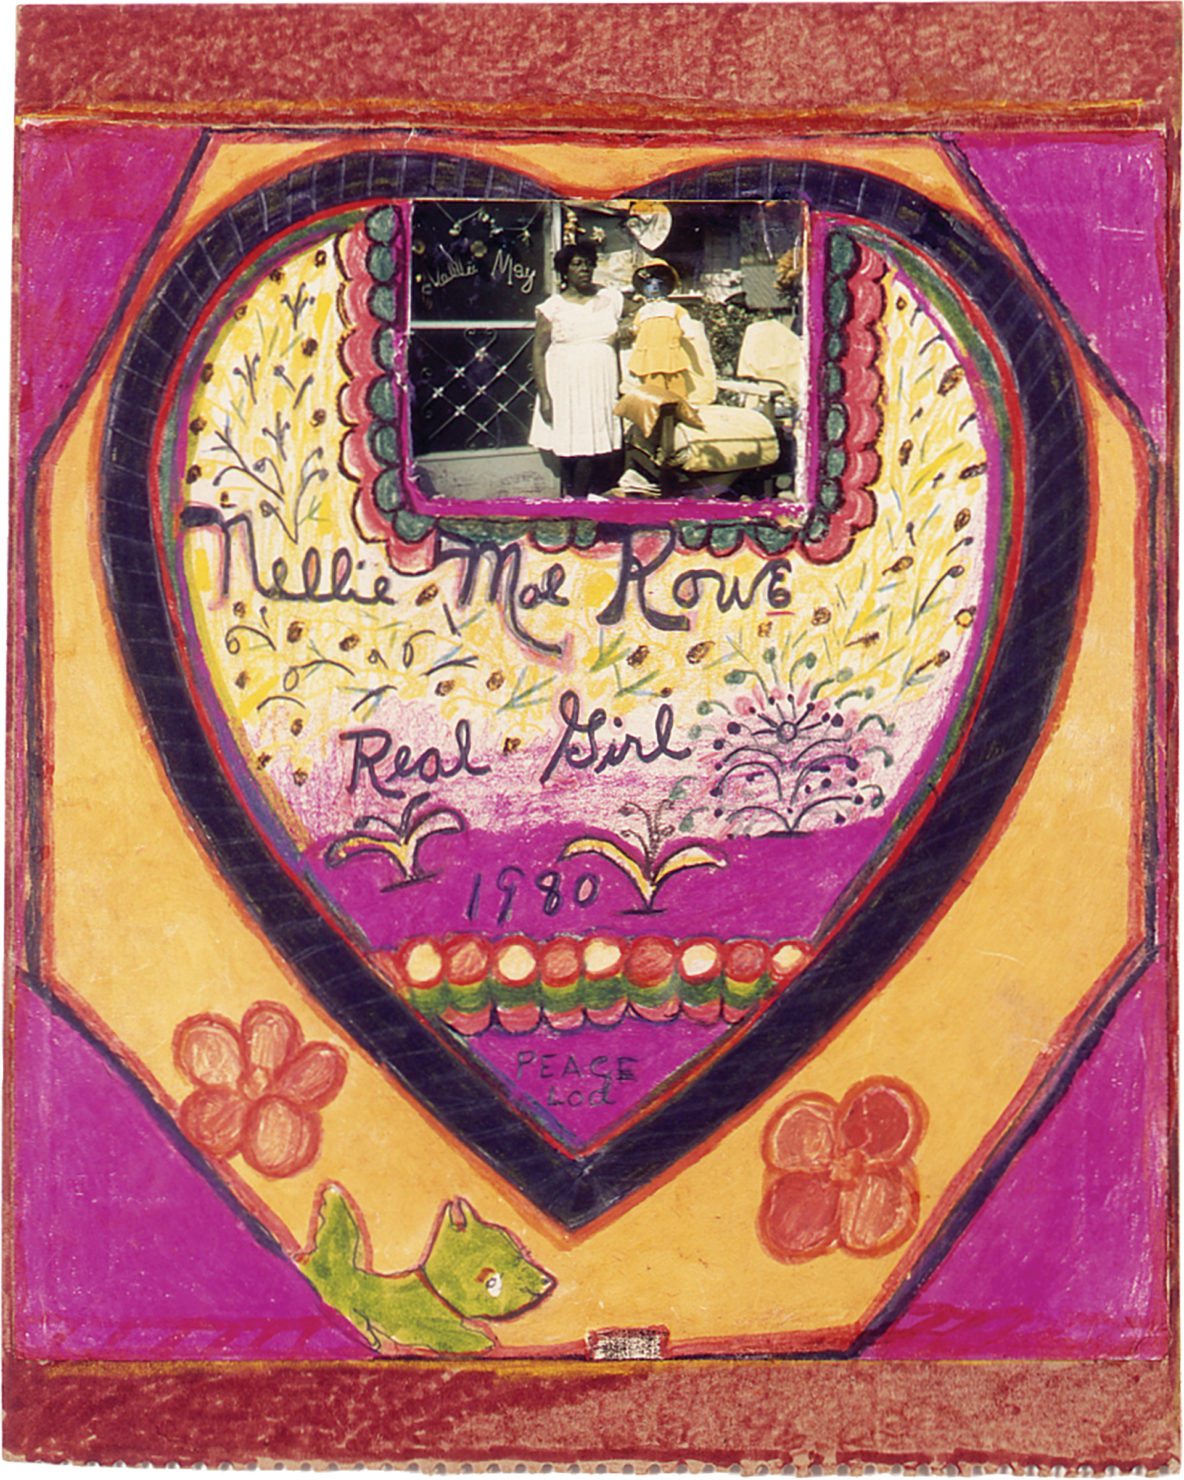 Nellie May
Nellie Mae Rowe
Real Girl
1980
PEACE